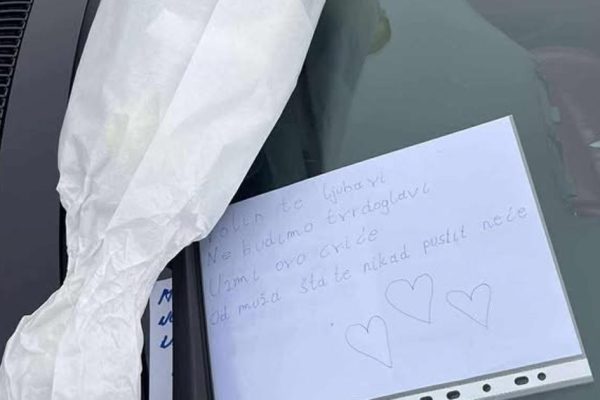 Molim te ljubavi
Ne budimo tvrdoglavi
Uzmi ovo cviće
Od muža šta te nikad pustit neće